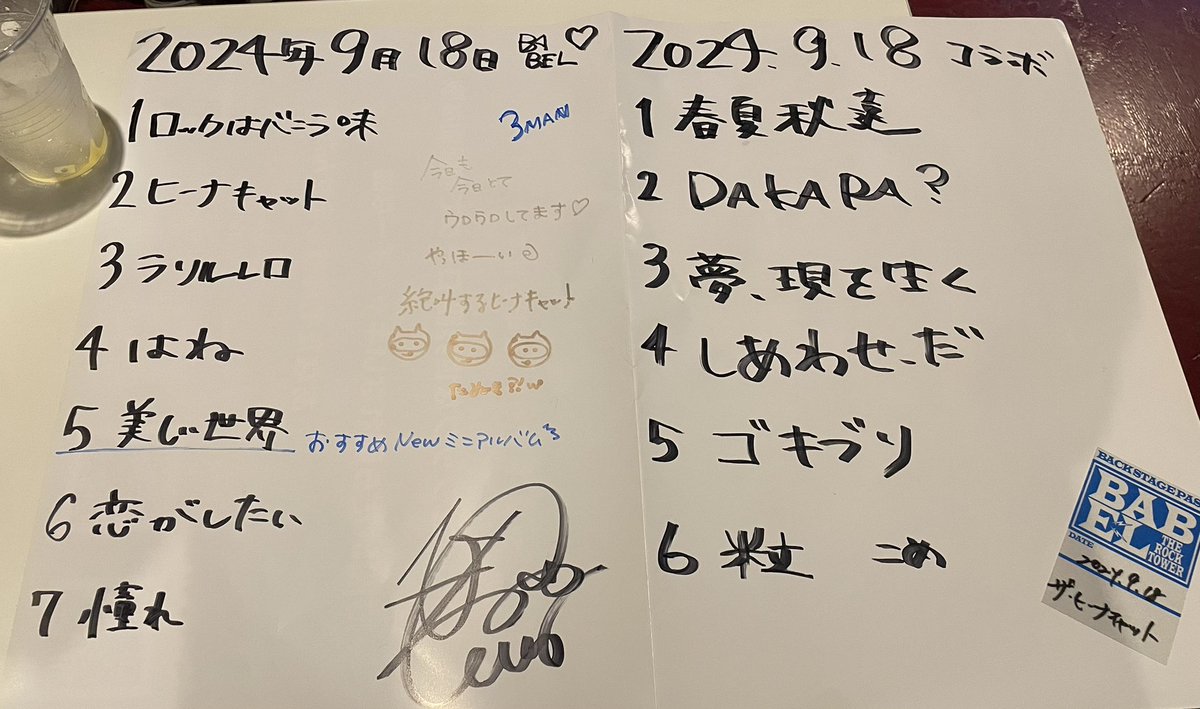 2024年9月18日 BABEL♡
1 ロックはバニラ味
3MAN
2 ヒーナキャット
今日も
今日とて
ウロウロしてます♡
3 ラリルレロ
やっほーい
絶叫するヒーナキャット
4 はね
5 美しい世界 おすすめNewミニアルバム
6 恋がしたい
7 憧れ
2024.9.18 コラボ
1 春夏秋
2 DAKARA?
3 夢、現を生く
4 しあわせ、だ
5 ゴキブリ
6 粒 こめ
BACK STAGE PAS
BABEL
THE ROCK TOWER
DATE
2024.9.18
ザ・ヒーナキャット